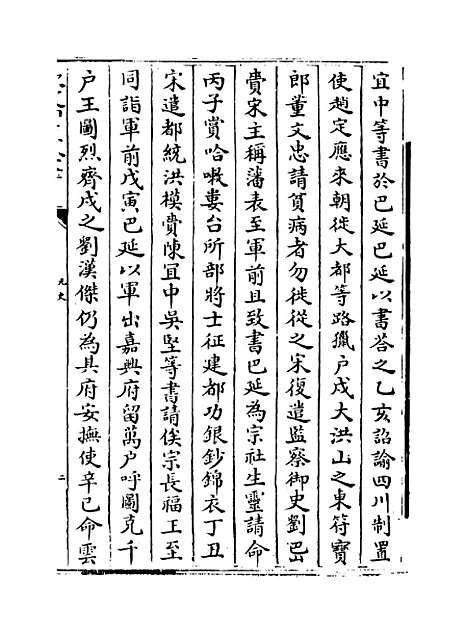 宜中等書於巴延巴延以書荅之乙亥詔諭四川制置
使趙定應來朝徙大都等路獵户戍大洪山之東符寶
郎董文忠請貧病者勿徙從之宋復遣監察御史劉岊
賫宋主稱藩表至軍前且致書巴延為宗社生靈請命
丙子賞哈喇婁台所部將士征建都功銀鈔錦衣丁丑
宋遣都統洪模賫陳宜中吳堅等書請俟宗長福王至
同詣軍前戊寅巴延以軍出嘉興府留萬户呼圖克千
户王圖烈齊戍之劉漢傑仍為其府安撫使辛巳命雲
元史
二